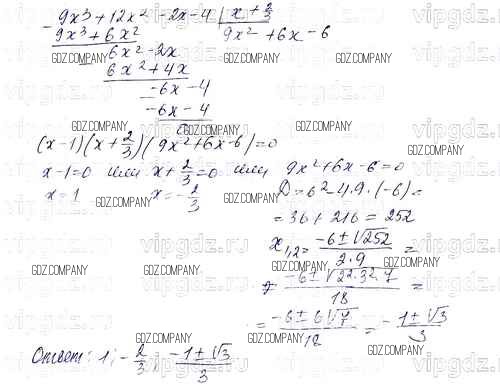 - 9x³ + 12x² - 2x - 4 | x + 2/3
9x³ + 6x² 9x² + 6x - 6
6x² - 2x
6x² + 4x
- -6x - 4
-6x - 4
0
(x-1)(x + 2/3)(9x² + 6x - 6) = 0
x - 1 = 0 или x + 2/3 = 0 или 9x² + 6x - 6 = 0
x = 1 x = - 2/3 D = 6² - 4·9·(-6) =
= 36 + 216 = 252
x₁,₂ = (-6 ± √252)/(2·9) =
= (-6 ± √(2²·3²·7))/18 =
= (-6 ± 6√7)/18 = (-1 ± √3)/3
Ответ: 1; - 2/3; (-1 ± √3)/3
vipgdz.ru
GDZ.COMPANY